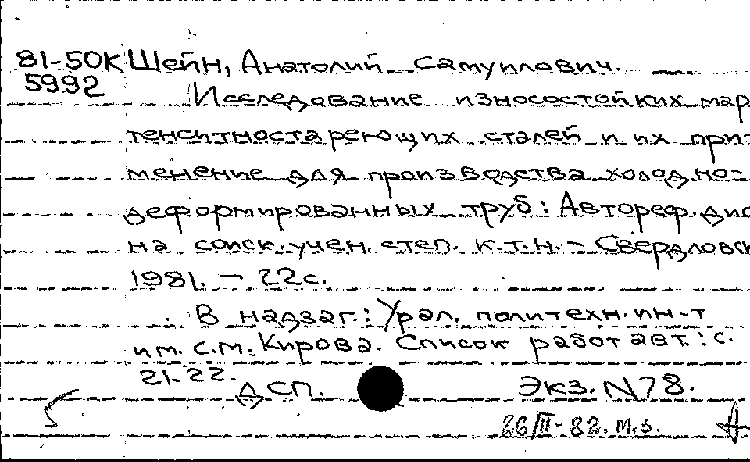 81-50К Шейн, Анатолий Самуилович.
5992
Исследование износостойких мар
тенситностареющих сталей и их при-
менение для производства холодно-
деформированных труб: Автореф. дис
на соиск. учен. степ. к.т.н. - Свердловск
1981. - 22с.
В надзаг: Урал. политехн. ин-т
им. С.М. Кирова. Список работ авт.: с.
21-22.
ДСП. Экз. N78.
26/II-82. М.З. А